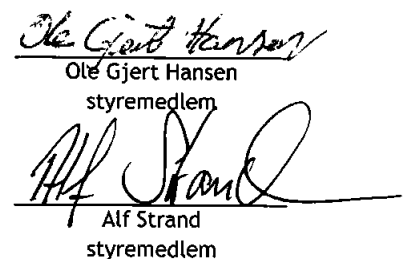 Ole Gjert Hansen
Ole Gjert Hansen
styremedlem
Alf Strand
Alf Strand
styremedlem